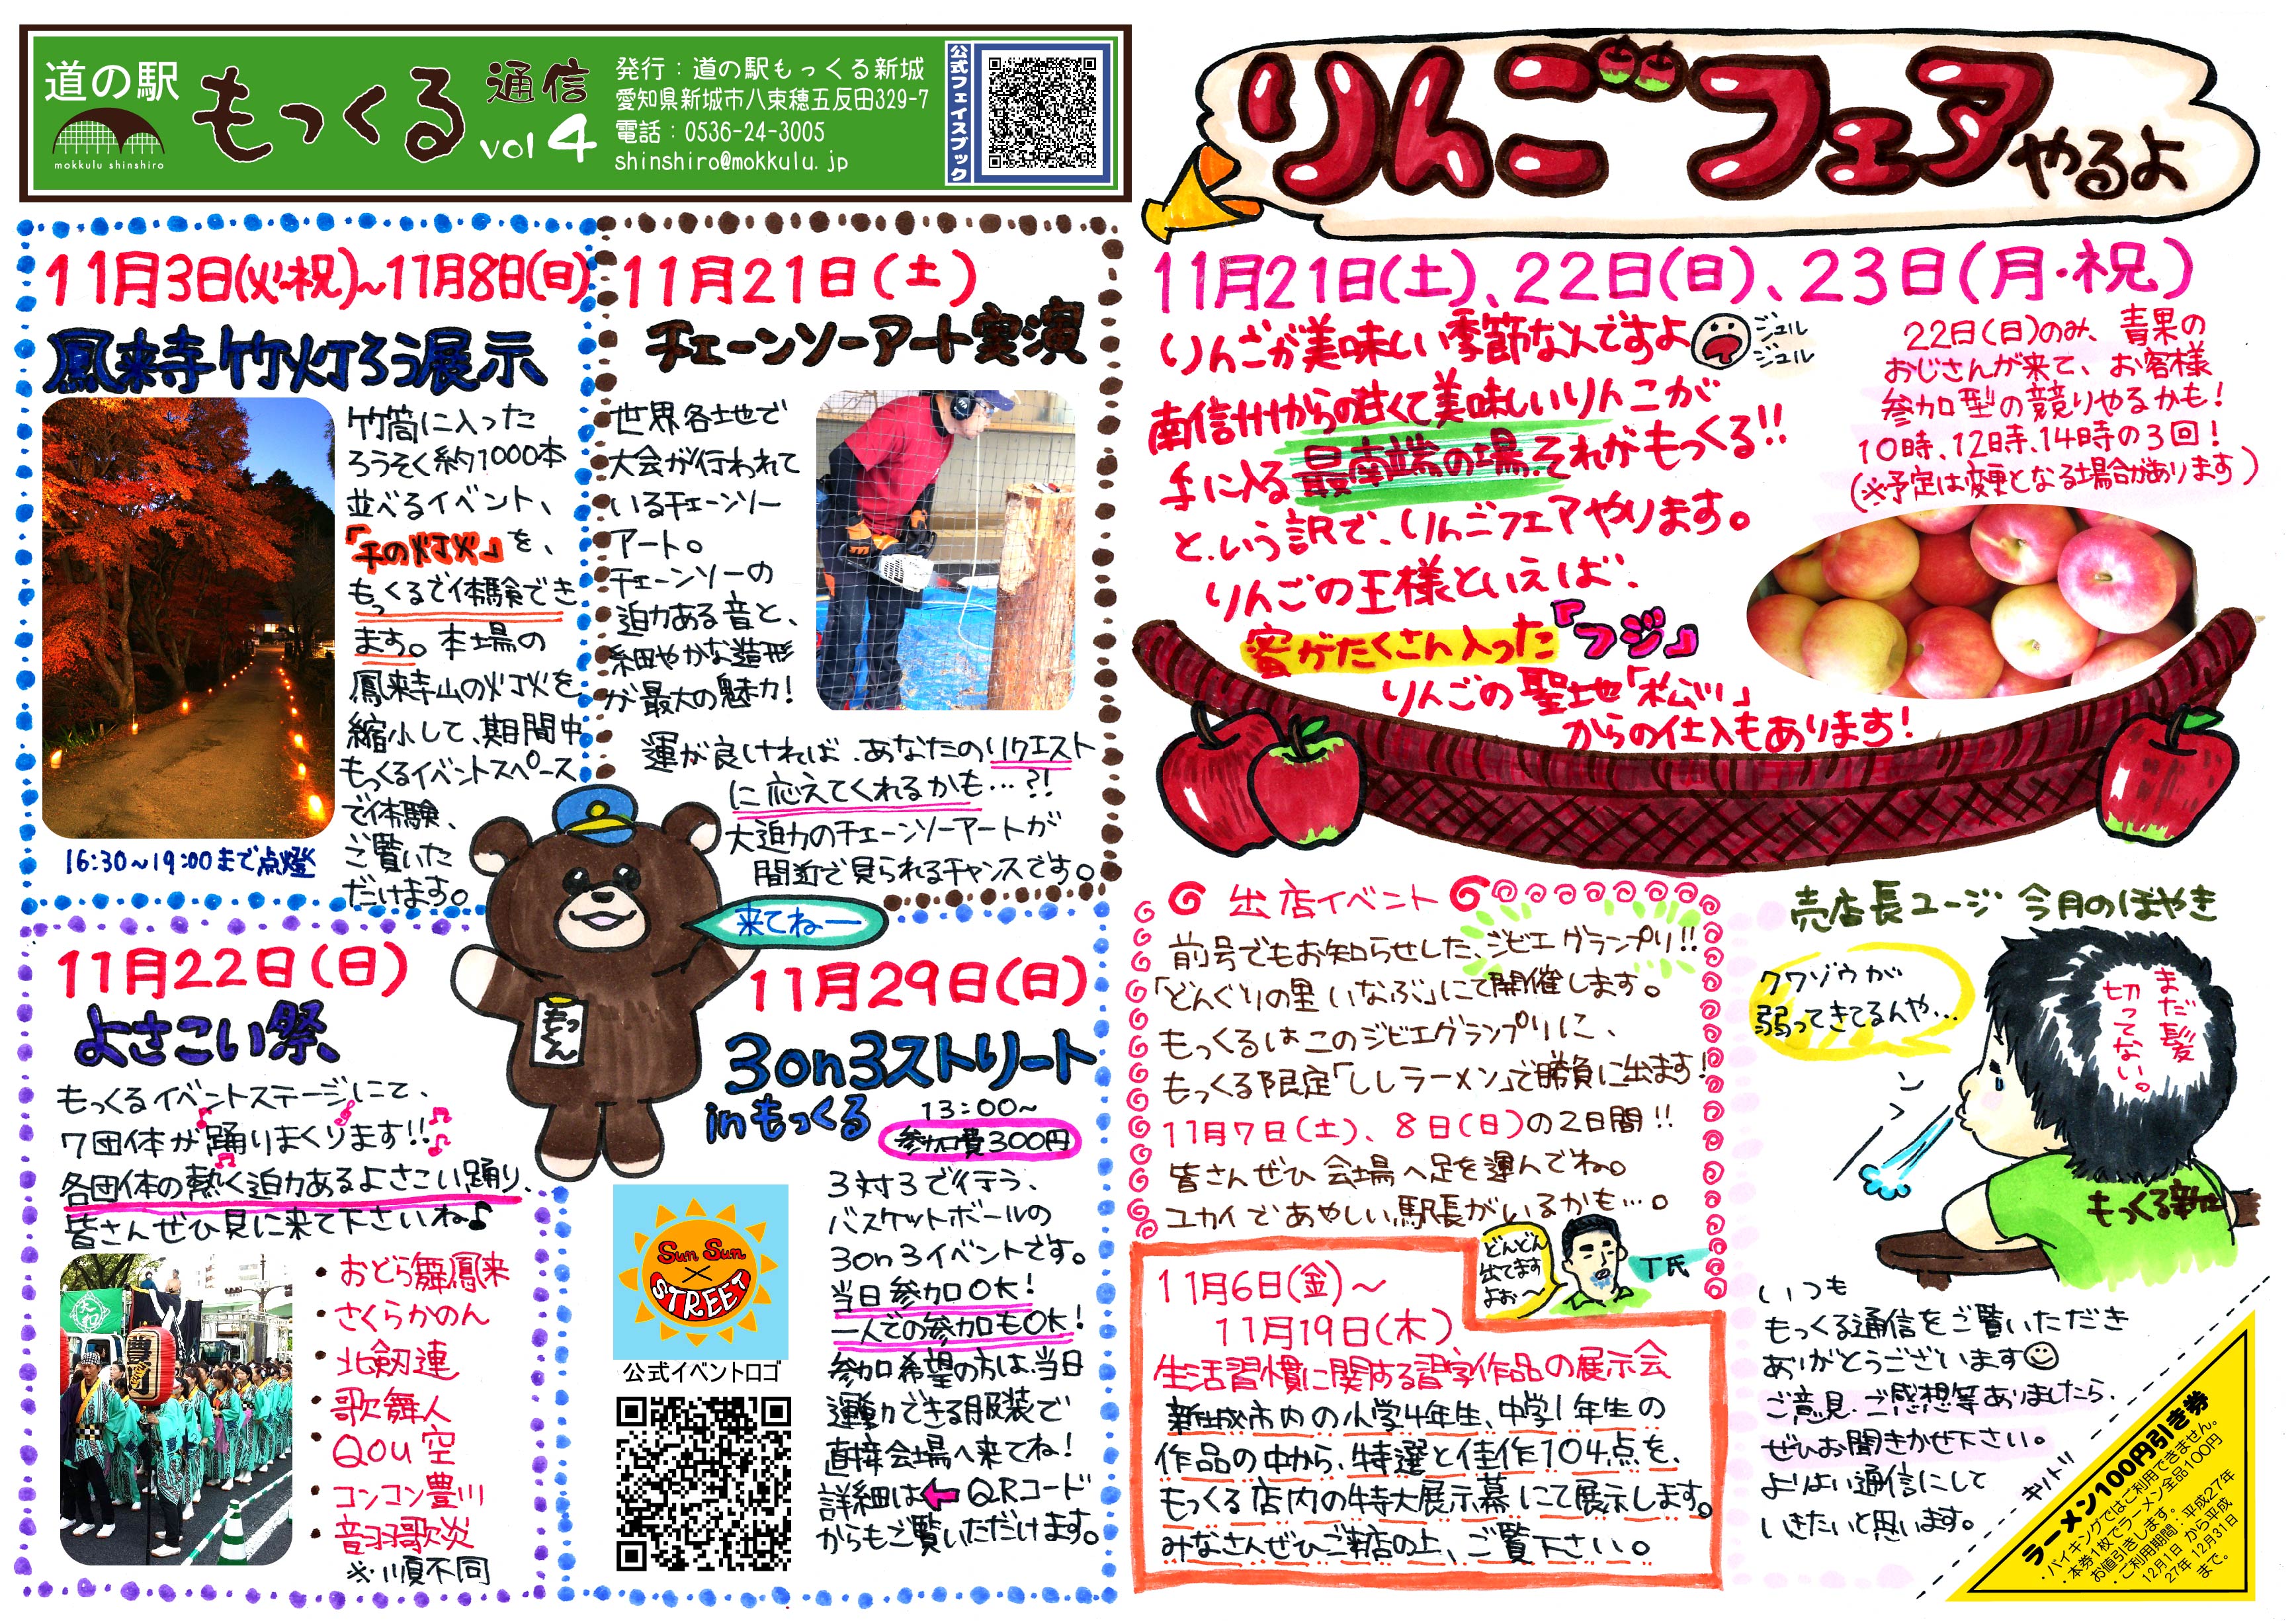 道の駅
mokkulu shinshiro
もっくる
通信
vol 4
発行:道の駅もっくる新城
愛知県新城市八束穂五反田329-7
電話:0536-24-3005
shinshiro@mokkulu.jp
公式フェイスブック
11月3日(火・祝)~11月8日(日)
鳳来寺竹灯ろう展示
竹筒に入った
ろうそく約1000本
並べるイベント、
「千の灯火」を、
もっくるで体験でき
ます。本場の
鳳来寺山の灯火を
縮小して、期間中
もっくるイベントスペース
で体験、
ご覧いた
だけます。
16:30~19:00まで点燈
11月21日(土)
チェーンソーアート実演
世界各地で
大会が行われて
いるチェーンソー
アート。
チェーンソーの
迫力ある音と、
細やかな造形
が最大の魅力!
運が良ければ、あなたのリクエスト
に応えてくれるかも…?!
大迫力のチェーンソーアートが
間近で見られるチャンスです。
来てねー
もっくん
11月22日(日)
よさこい祭
もっくるイベントステージにて、
7団体が踊りまくります!!
各団体の熱く迫力あるよさこい踊り、
皆さんぜひ見に来て下さいね♪
・おどら舞鳳来
・さくらかのん
・北剱連
・歌舞人
・Qou空
・コンコン豊川
・音羽歌炎
※順不同
11月29日(日)
3on3ストリート
inもっくる
13:00~
参加費300円
3対3で行う、
バスケットボールの
3on3イベントです。
当日参加OK!
一人での参加もOK!
参加希望の方は、当日
運動できる服装で
直接会場へ来てね!
詳細は←QRコード
からもご覧いただけます。
Sun Sun
×
STREET
公式イベントロゴ
りんごフェアやるよ
11月21日(土)、22日(日)、23日(月・祝)
りんごが美味しい季節なんですよ
ジュル
ジュル
南信州からの甘くて美味しいりんごが
手に入る最南端の場、それがもっくる!!
という訳で、りんごフェアやります。
りんごの王様といえば、
蜜がたくさん入った「フジ」
りんごの聖地「松川」
からの仕入もあります!
22日(日)のみ、青果の
おじさんが来て、お客様
参加型の競りやるかも!
10時、12時、14時の3回!
(※予定は変更となる場合があります)
出店イベント
前号でもお知らせした、ジビエグランプリ!!
「どんぐりの里いなぶ」にて開催します。
もっくるはこのジビエグランプリに、
もっくる限定「ししラーメン」で勝負に出ます!
11月7日(土)、8日(日)の2日間!!
皆さんぜひ会場へ足を運んでね。
ユカイであやしい駅長がいるかも…。
どんどん
出てます
よぉ~
T氏
11月6日(金)~
11月19日(木)
生活習慣に関する習字作品の展示会
新城市内の小学4年生、中学1年生の
作品の中から、特選と佳作104点を、
もっくる店内の特大展示幕にて展示します。
みなさんぜひご来店の上、ご覧下さい。
売店長ユージ 今月のぼやき
クワゾウが
弱ってきてるんや…
まだ髪
切ってない。
もっくる新城
いつも
もっくる通信をご覧いただき
ありがとうございます
ご意見・ご感想等ありましたら、
ぜひお聞きかせ下さい。
よりよい通信にして
いきたいと思います。
キリトリ
ラーメン100円引き券
・バイキングではご利用できません。
・本券1枚でラーメン全品100円
お値引きします。
・ご利用期間:平成27年
12月1日 から平成
27年 12月31日
まで。